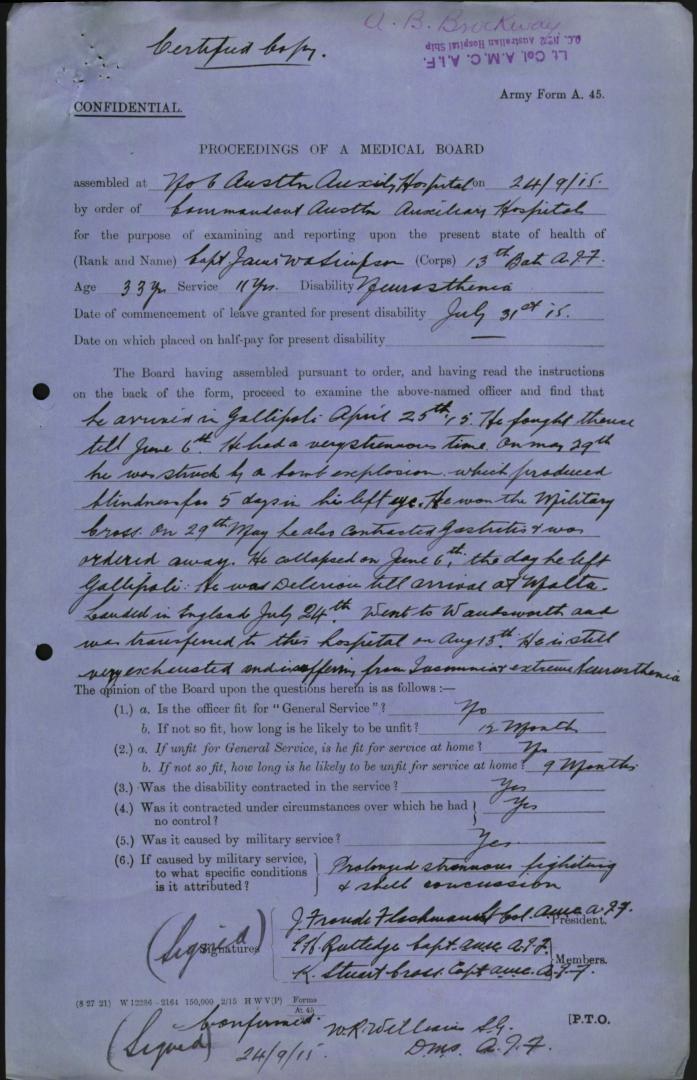 A. B. Brockway
Lt. Col. A.M.C. A.I.F.
O.C. No 2 Australian Hospital Ship
Certified Copy.
CONFIDENTIAL.
Army Form A. 45.
PROCEEDINGS OF A MEDICAL BOARD
assembled at Austln Auxily Hospital on 24/9/15.
by order of Commandant Austln Auxiliary Hospital
for the purpose of examining and reporting upon the present state of health of
(Rank and Name) Capt (Corps) 13th Bat A.I.F.
Age 33 yrs Service 11 Yrs. Disability Neurosthenia
Date of commencement of leave granted for present disability July 31st 15.
Date on which placed on half-pay for present disability —
The Board having assembled pursuant to order, and having read the instructions
on the back of the form, proceed to examine the above-named officer and find that
he arrived in Gallipoli April 25th, 15. He fought there
till June 6th. He had a very strenuous time. On May 29th
he was struck by a bomb explosion which produced
blindness for 5 days in his left eye. He won the Military
Cross. On 29th May he also contracted Gastritis & was
ordered away. He collapsed on June 6th, the day he left
Gallipoli. He was Delerious till arrival at Malta.
Landed in England July 24th. Went to Wandsworth and
was transferred to this hospital on Aug 13th. He is still
very exhausted and is suffering from Insomnia & extreme Neurosthenia
The opinion of the Board upon the questions herein is as follows :—
(1.) a. Is the officer fit for "General Service"? No
b. If not so fit, how long is he likely to be unfit? 12 Months
(2.) a. If unfit for General Service, is he fit for service at home? No
b. If not so fit, how long is he likely to be unfit for service at home? 9 Months
(3.) Was the disability contracted in the service? Yes
(4.) Was it contracted under circumstances over which he had no control? Yes
(5.) Was it caused by military service? Yes.
(6.) If caused by military service, Prolonged strenuous fighting
to what specific conditions & shell concussion
is it attributed?
J. Froude Flashman Lt Col. AAMC A.I.F. President.
(Signed) Signatures Rutledge Capt. AAMC A.I.F.
K. Stuart Cross. Capt AAMC. A.I.F. Members.
(8 27 21) W 12286—2164 150,000 2/15 H W V(P) Forms At 45
Confirmed.
(Signed) W.R. Williams S.G.
24/9/15. DMS. A.I.F.
[P.T.O.